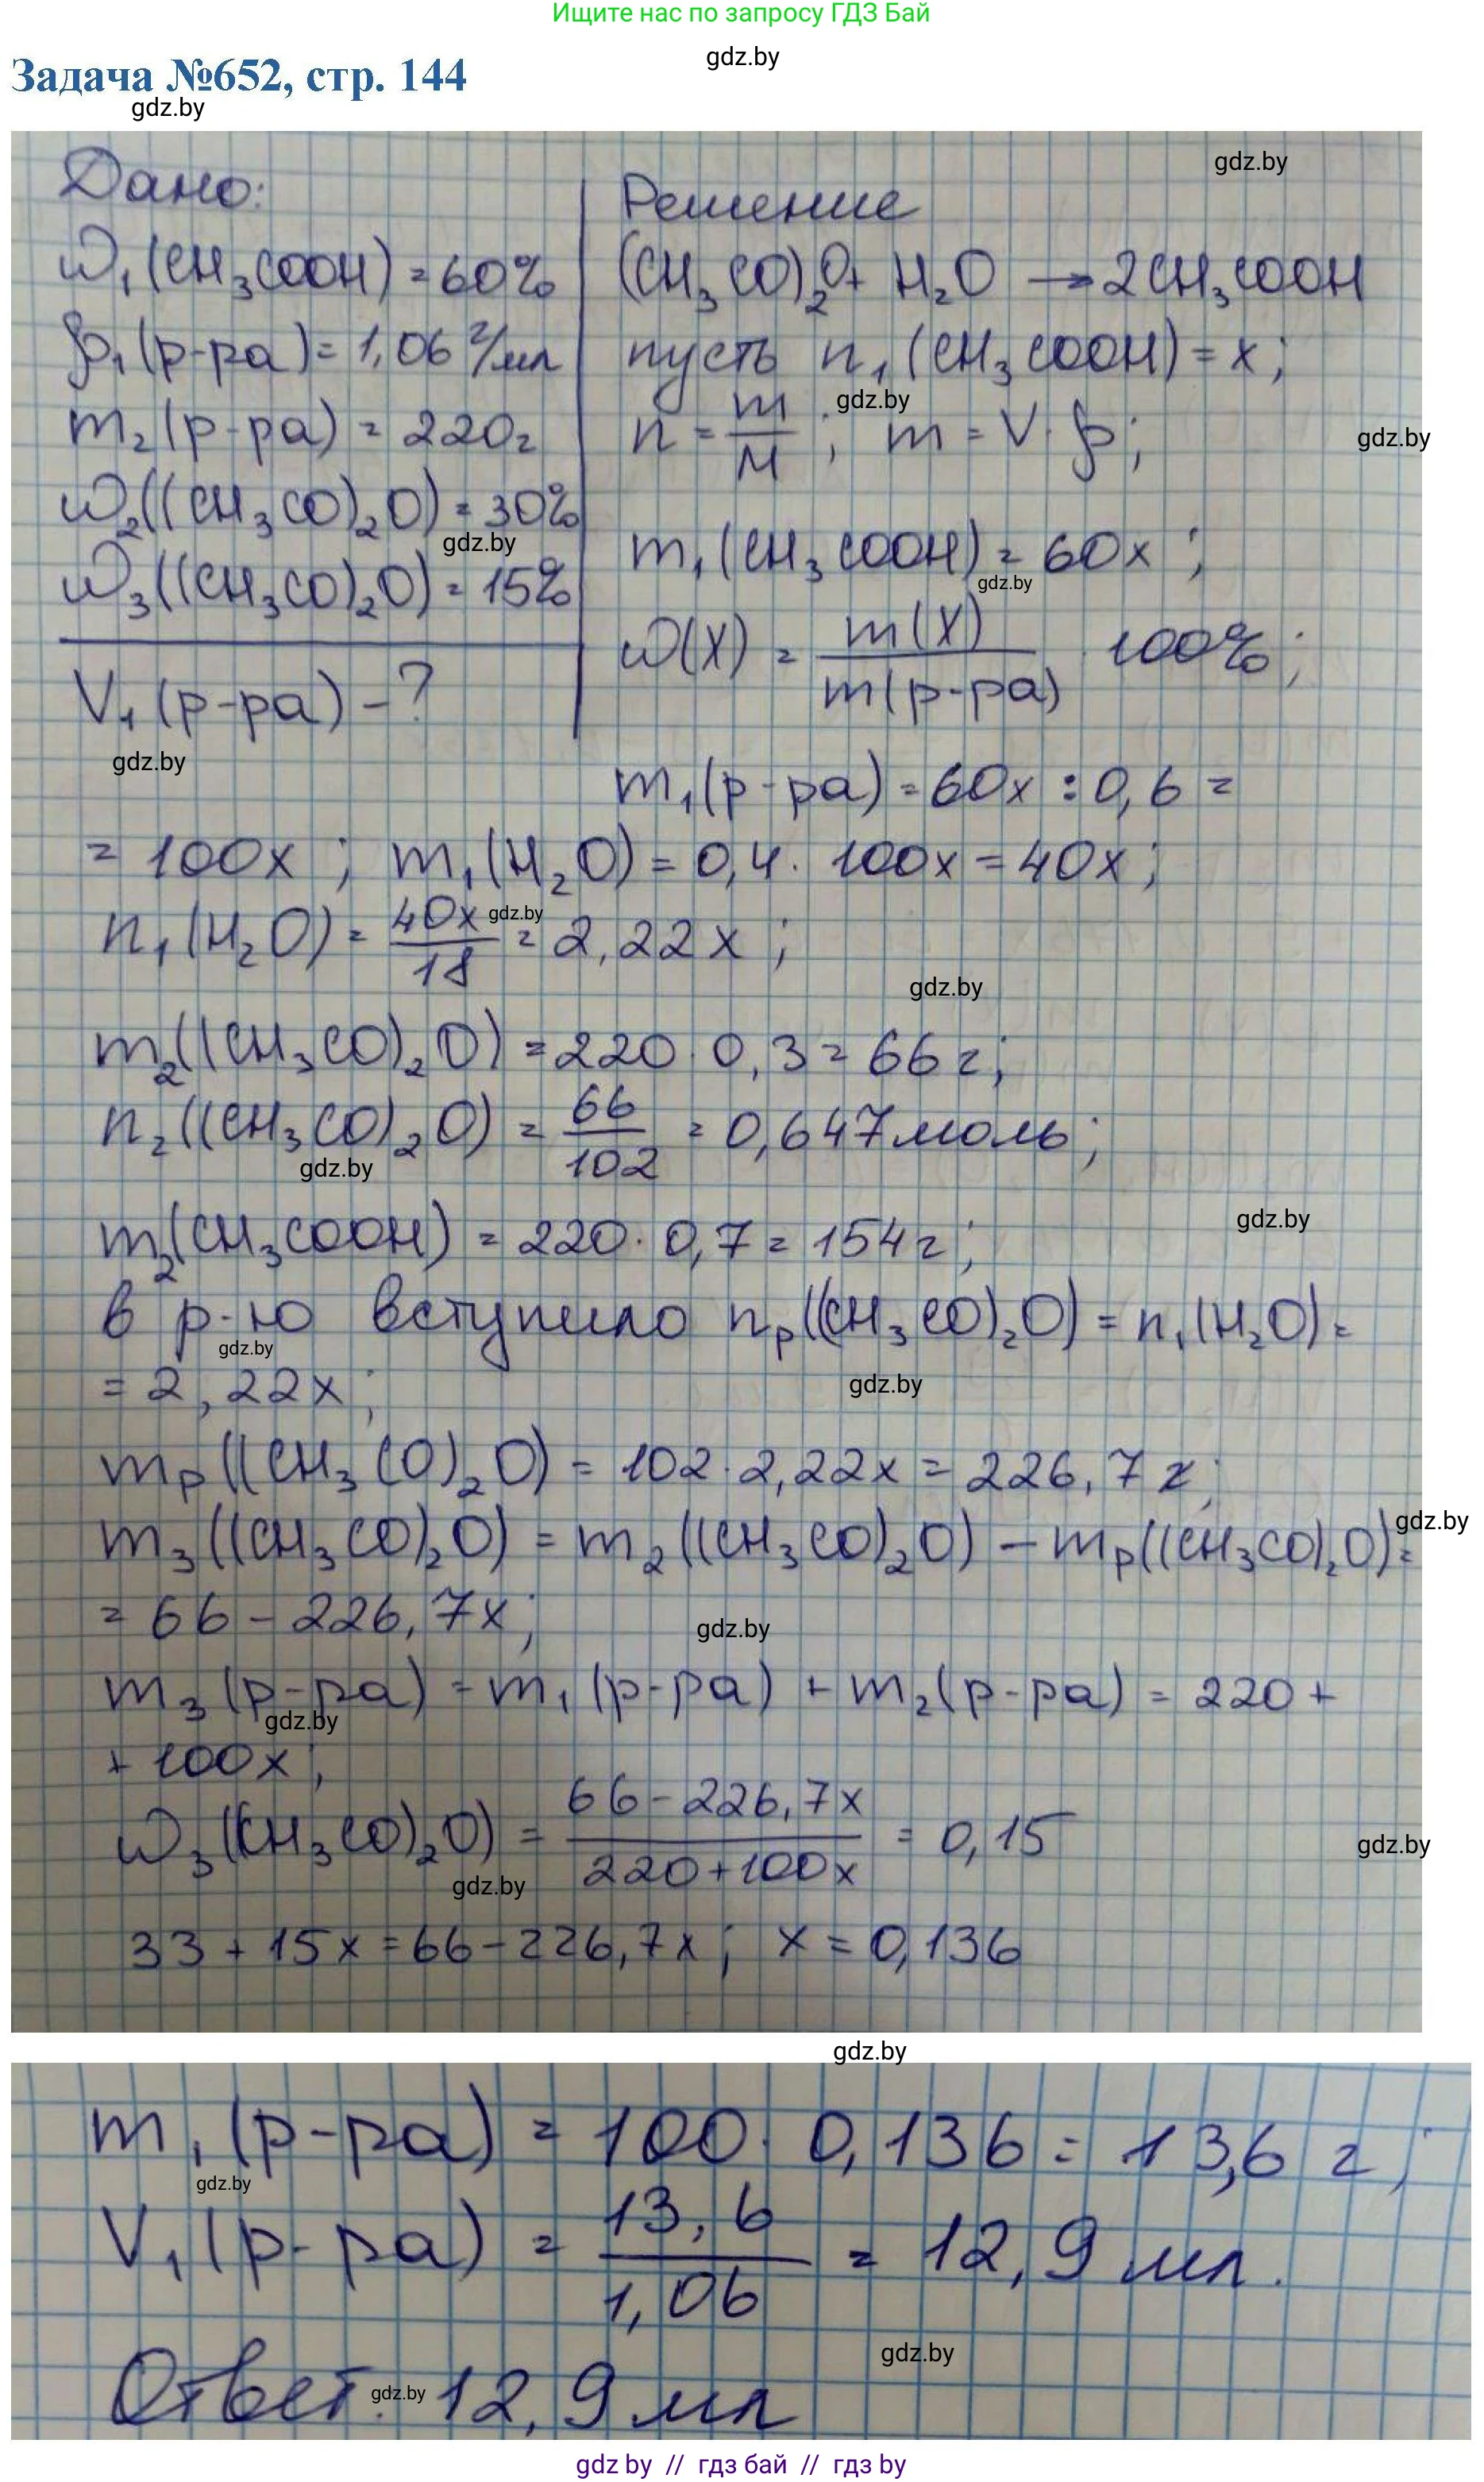 Ищите нас по запросу ГДЗ Бай
gdz.by
Задача №652, стр. 144
gdz.by
gdz.by
Дано:
ω₁(CH₃COOH) = 60%
ρ₁(р-ра) = 1,06 г/мл
m₂(р-ра) = 220г
ω₂((CH₃CO)₂O) = 30%
gdz.by
ω₃((CH₃CO)₂O) = 15%
V₁(р-ра) - ?
gdz.by
Решение
(CH₃CO)₂O + H₂O → 2CH₃COOH
пусть n₁(CH₃COOH) = x;
gdz.by
n = m/M ; m = V · ρ;
gdz.by
m₁(CH₃COOH) = 60x ;
gdz.by
ω(X) = m(X)/m(р-ра) · 100% ;
m₁(р-ра) = 60x : 0,6 =
= 100x ; m₁(H₂O) = 0,4 · 100x = 40x ;
n₁(H₂O) = 40x/18 = 2,22x ;
gdz.by
gdz.by
m₂((CH₃CO)₂O) = 220 · 0,3 = 66г;
n₂((CH₃CO)₂O) = 66/102 = 0,647моль ;
gdz.by
gdz.by
m₂(CH₃COOH) = 220 · 0,7 = 154г ;
в р-ю вступило nₚ((CH₃CO)₂O) = n₁(H₂O) =
gdz.by
= 2,22x ;
gdz.by
mₚ((CH₃CO)₂O) = 102 · 2,22x = 226,7x;
gdz.by
m₃((CH₃CO)₂O) = m₂((CH₃CO)₂O) - mₚ((CH₃CO)₂O) =
= 66 - 226,7x ;
gdz.by
m₃(р-ра) = m₁(р-ра) + m₂(р-ра) = 220 +
gdz.by
+ 100x ;
ω₃((CH₃CO)₂O) = 66-226,7x/220+100x = 0,15
gdz.by
gdz.by
33 + 15x = 66 - 226,7x ; x = 0,136
gdz.by
m₁(р-ра) = 100 · 0,136 = 13,6 г ;
gdz.by
V₁(р-ра) = 13,6/1,06 = 12,9 мл.
gdz.by
Ответ: 12,9 мл
gdz.by
gdz by // гдз бай // гдз by